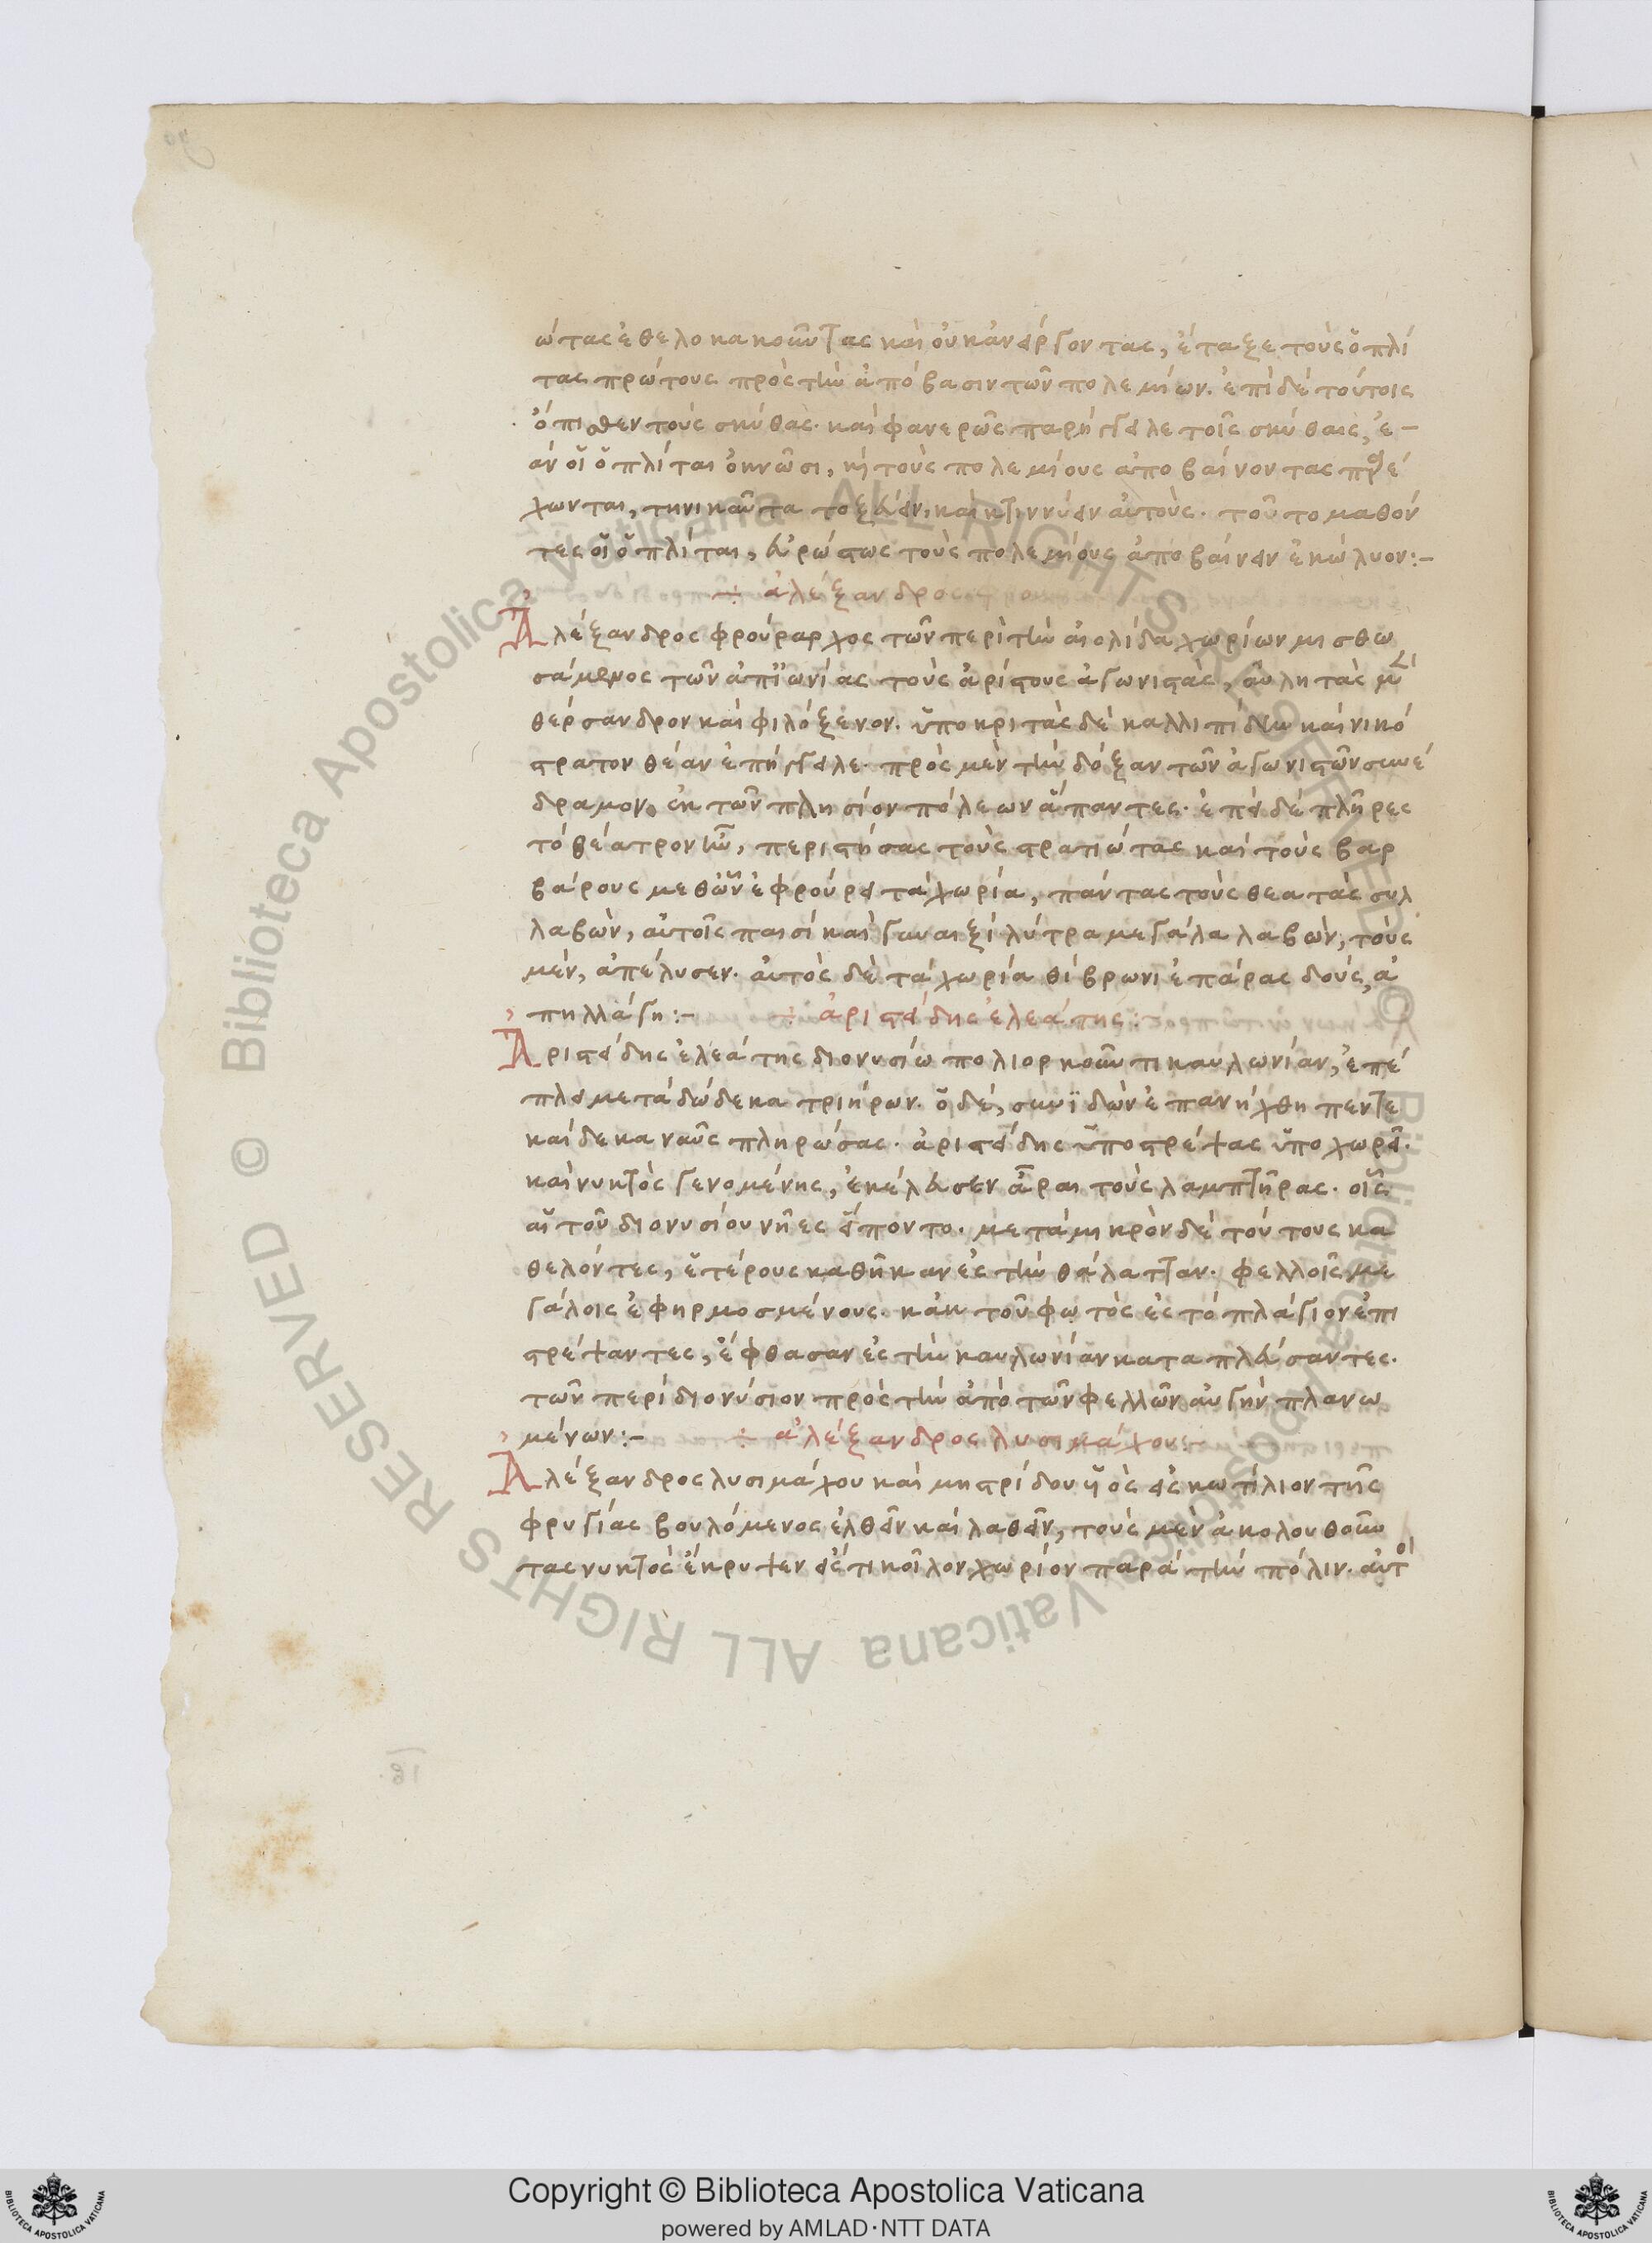 ώτας ἐθελοκακοῦντας καὶ οὐκ ἀνείργοντας, ἔταξε τοὺς ὁπλί
τας πρώτους πρὸς τὴν ἀπόβασιν τῶν πολεμίων. ἐπὶ δὲ τούτοις
ὄπισθεν τοὺς σκύθας. καὶ φανερῶς παρήγγειλε τοῖς σκύθαις, ἐ-
ὰν οἱ ὁπλῖται ὀκνῶσι, κἢ τοὺς πολεμίους ἀποβαίνοντας προσδέ
χωνται, τηνικαῦτα τοξεύειν καὶ κτιννύειν αὐτούς. τοῦτο μαθόν
τες οἱ ὁπλῖται, εὐρώστως τοὺς πολεμίους ἀποβαίνειν ἐκώλυον:-
÷ ἀλέξανδρος
Ἀλέξανδρος φρούραρχος τῶν περὶ τὴν αἰολίδα χωρίων μισθω
σάμενος τῶν ἀπ' ἰωνίας τοὺς ἀρίστους ἀγωνιστὰς, αὐλητὰς μὲν
θέρσανδρον καὶ φιλόξενον. ὑποκριτὰς δὲ καλλιπίδην καὶ νικό
στρατον θέαν ἐπήγγειλε. πρὸς μὲν τὴν δόξαν τῶν ἀγωνιστῶν συνέ
δραμον ἐκ τῶν πλησίον πόλεων ἅπαντες. ἐπεὶ δὲ πλῆρες
τὸ θέατρον ἦν, περιστήσας τοὺς στρατιώτας καὶ τοὺς βαρ
βάρους μεθ' ὧν ἐφρούρει τὰ χωρία, πάντας τοὺς θεατὰς συλ
λαβὼν, αὐτοῖς παισὶ καὶ γυναιξὶ λύτρα μεγάλα λαβὼν, τοὺς
μὲν, ἀπέλυσεν. αὐτὸς δὲ τὰ χωρία θίβρωνι ἐπάρας δοὺς, ἀ
πηλλάγη:- ÷ ἀριστείδης ἐλεάτης:
Ἀριστείδης ἐλεάτης διονυσίω πολιορκοῦντι καυλωνίαν, ἐπέ
πλει μετὰ δώδεκα τριήρων. ὁ δὲ, συνιδὼν ἐπανήχθη πεντε
καίδεκα ναῦς πληρώσας. ἀριστείδης ὑποστρέψας ὑποχωρεῖ.
καὶ νυκτὸς γενομένης, ἐκέλευσεν ἆραι τοὺς λαμπτῆρας. οἷς
αἱ τοῦ διονυσίου νῆες εἵποντο. μετὰ μικρὸν δὲ τούτους κα
θελόντες, ἑτέρους καθῆκαν ἐς τὴν θάλατταν. φελλοῖς με
γάλοις ἐφηρμοσμένους. κἀκ τοῦ φωτὸς ἐς τὸ πλάγιον ἐπι
στρέψαντες, ἔφθασαν ἐς τὴν καυλωνίαν καταπλεύσαντες.
τῶν περὶ διονύσιον πρὸς τὴν ἀπὸ τῶν φελλῶν αὐγὴν πλανω
μένων:- ÷ ἀλέξανδρος λυσιμάχου:
Ἀλέξανδρος λυσιμάχου καὶ μηστρίδου υἱὸς εἰς κωτίλιον τῆς
φρυγίας βουλόμενος ἐλθεῖν καὶ λαθεῖν, τοὺς μὲν ἀκολουθοῦν
τας νυκτὸς ἔκρυψεν εἴς τι κοῖλον χωρίον παρὰ τὴν πόλιν. αὐτὸς
© Biblioteca Apostolica Vaticana ALL RIGHTS RESERVED © Biblioteca Apostolica Vaticana ALL RIGHTS RESERVED
Copyright © Biblioteca Apostolica Vaticana
powered by AMLAD·NTT DATA
BIBLIOTECA APOSTOLICA VATICANA
BIBLIOTECA APOSTOLICA VATICANA